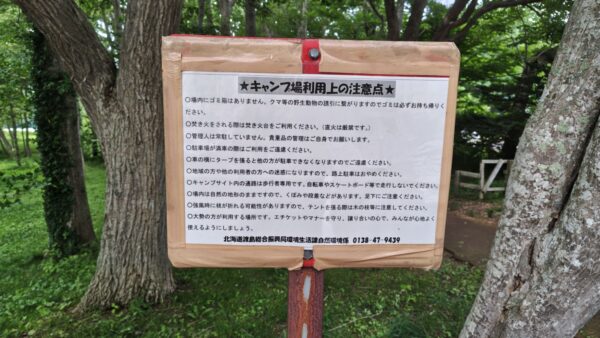 ★キャンプ場利用上の注意点★
○場内にゴミ箱はありません。クマ等の野生動物の誘引に繋がりますのでゴミは必ずお持ち帰りく
ださい。
○焚き火をされる際は焚き火台をご利用ください。（直火は厳禁です。）
○管理人は常駐していません。貴重品の管理はご自身でお願いします。
○駐車場が満車の際はご利用をご遠慮ください。
○車の横にタープを張ると他の方が駐車できなくなりますのでご遠慮ください。
○地域の方や他の利用者の方への迷惑になりますので、路上駐車はおやめください。
○キャンプサイト内の通路は歩行者専用です。自転車やスケートボード等で走行しないでください。
○場内は自然の地形のままですので、くぼみや段差などがあります。足下にご注意ください。
○強風時に枝が折れる可能性がありますので、テントを張る際は木の枝等に注意してください。
○大勢の方が利用する場所です。エチケットやマナーを守り、譲り合いの心で、みんなが心地よく
使えるようにしましょう。
北海道渡島総合振興局環境生活課自然環境係 0138-47-9439